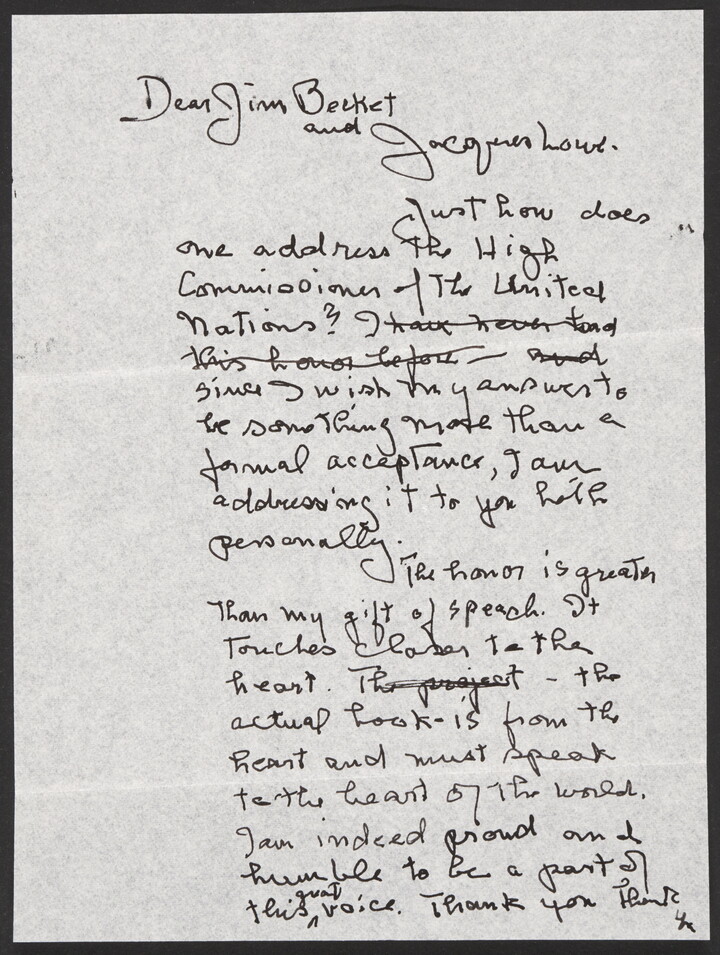 Dear Jim Becket
and
Jacques Lowe.
Just how does
one address the High
Commissioner of The United
Nations? I have never had
this honor before – and
since I wish my answer to
be something more than a
formal acceptance, I am
addressing it to you both
personally.
The honor is greater
than my gift of speach. It
touches closer to the
heart. The project – the
actual book – is from the
heart and must speak
to the heart of the world.
I am indeed proud and
humble to be a part of
great
this voice. Thank you Thank